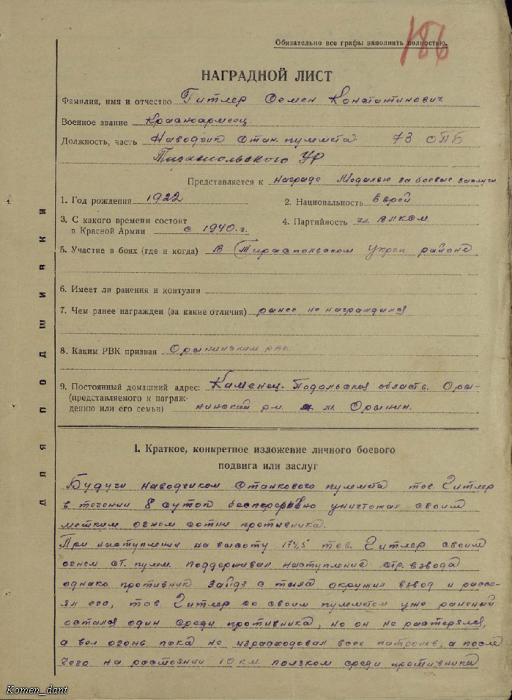 Обязательно все графы заполнить полностью.
186
НАГРАДНОЙ ЛИСТ
Фамилия, имя и отчество Гитлер Семен Константинович
Военное звание Красноармеец
Должность, часть Наводчик стан. пулмета 73 ОПБ
Тираспольского УР
Представляется к награде Медалью за боевые заслуги
1. Год рождения 1922 2. Национальность еврей
3. С какого времени состоит
в Красной Армии с 1940 г. 4. Партийность чл. ВЛКСМ
5. Участие в боях (где и когда) В Тираспольском укреп районе
6. Имеет ли ранения и контузии
7. Чем ранее награжден (за какие отличия) ранее не награждался
8. Каким РВК призван Орынинским рвк
9. Постоянный домашний адрес: Каменец-Подольская область. Оры-
(представляемого к награж-
дению или его семьи) нинский р-н м. Орынин.
ДЛЯ ПОДШИВКИ
I. Краткое, конкретное изложение личного боевого
подвига или заслуг
Будучи наводчиком станкового пулмета тов Гитлер
в течении 8 суток беспрерывно уничтожал своим
метким огнем сотни противника.
При наступлении на высоту 174,5 тов. Гитлер своим
огнем ст. пулм. поддерживал наступление стр. взвода
однако противник зайдя с тыла окружил взвод и рассе-
ял его, тов Гитлер со своим пулметом уже раненый
остался один среди противника, но он не растерялся,
а вел огонь пока не израсходовал всех патронов, а после
чего на расстоянии 10 км ползком среди противника
Komen_dant